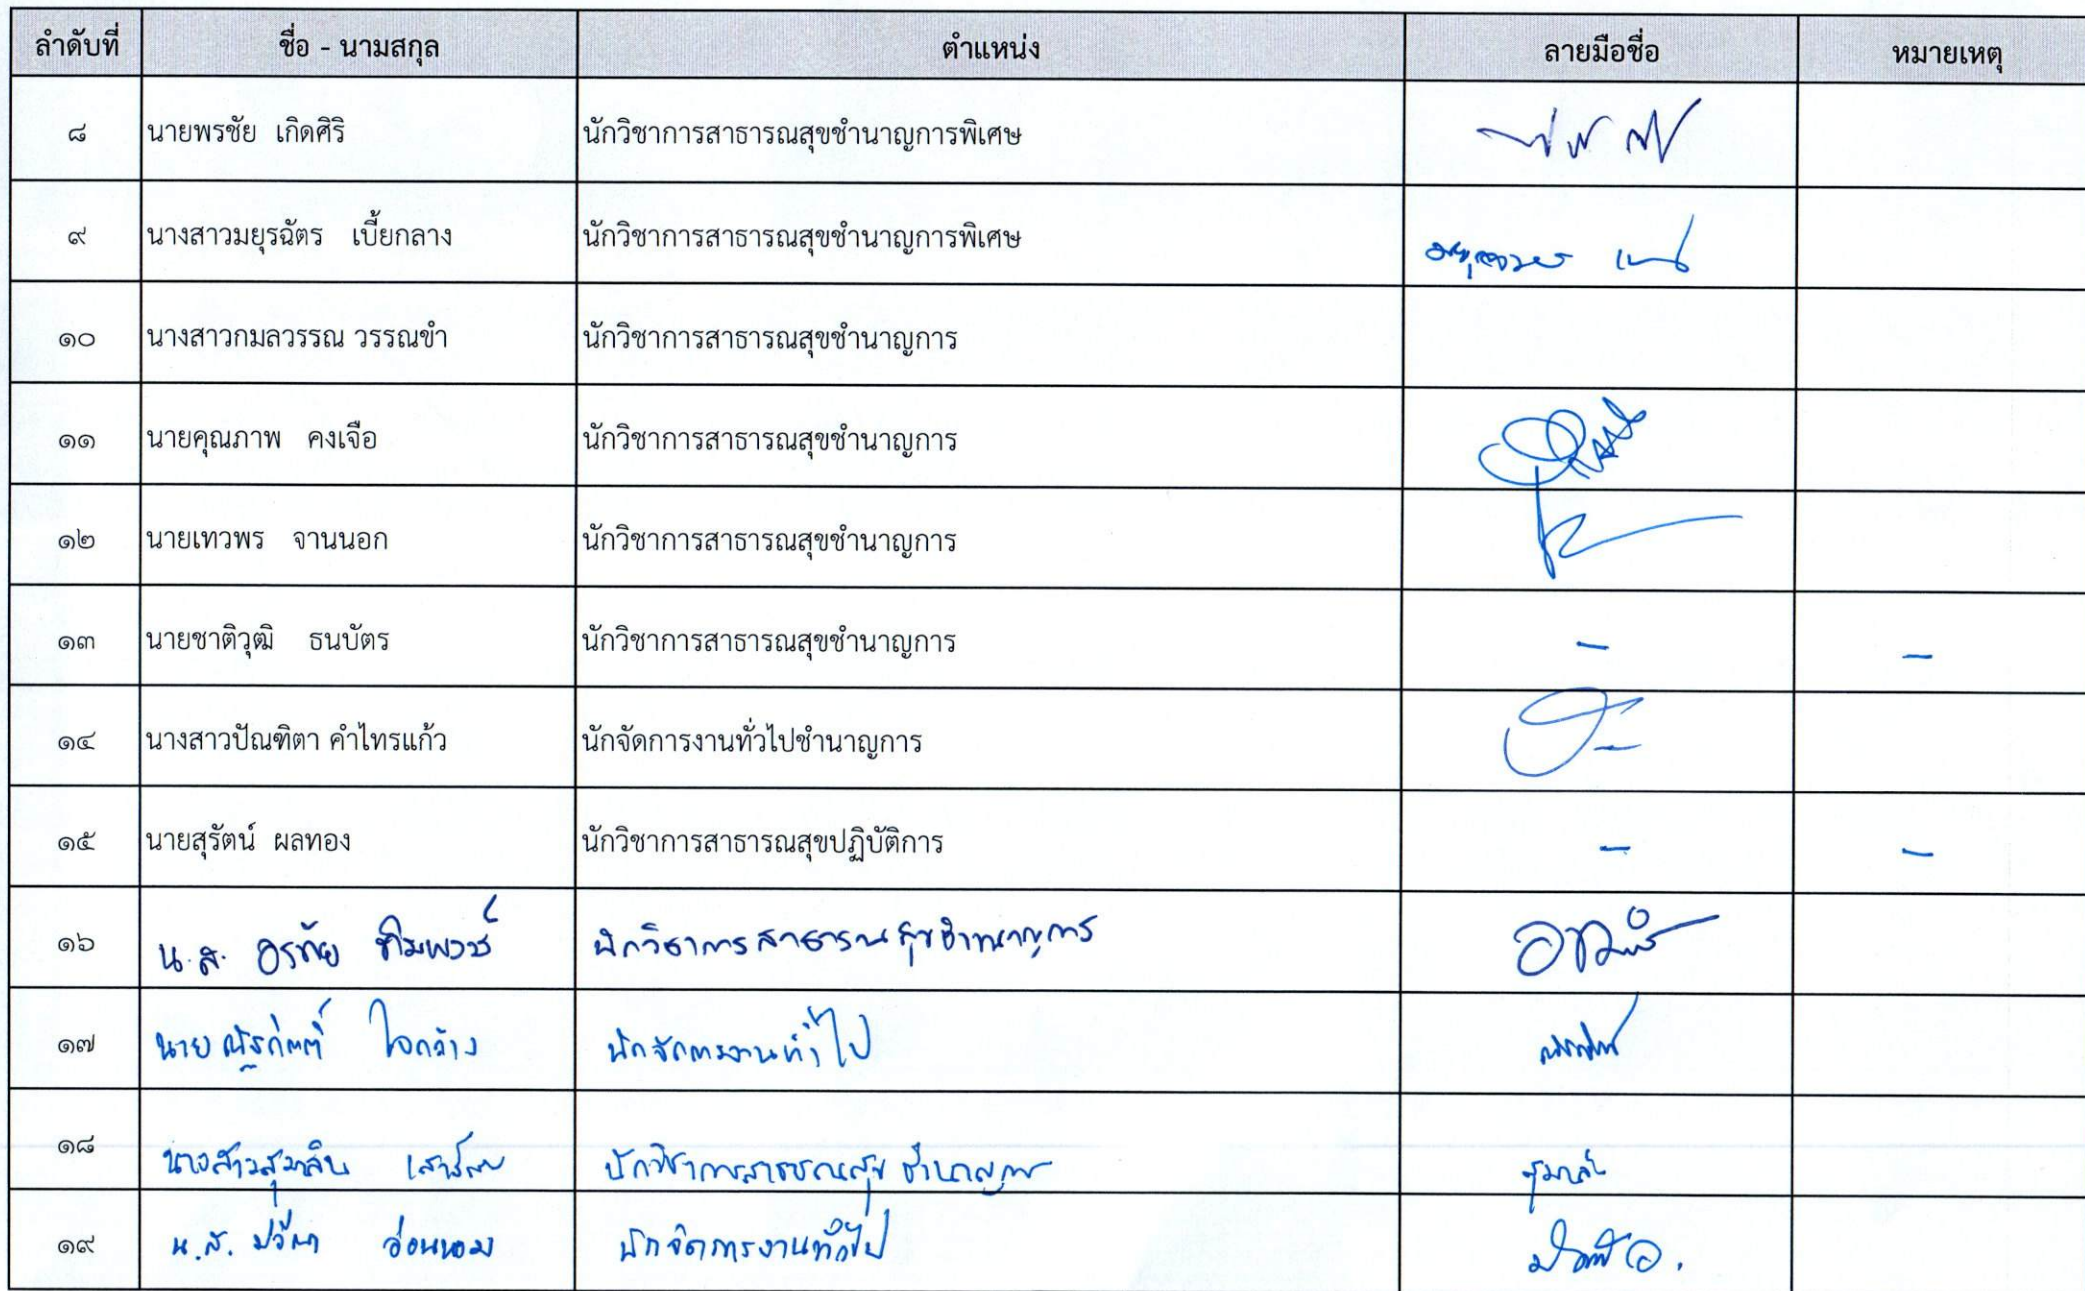 ลำดับที่ ชื่อ - นามสกุล ตำแหน่ง ลายมือชื่อ หมายเหตุ
๘ นายพรชัย เกิดศิริ นักวิชาการสาธารณสุขชำนาญการพิเศษ
๙ นางสาวมยุรฉัตร เบี้ยกลาง นักวิชาการสาธารณสุขชำนาญการพิเศษ
๑๐ นางสาวกมลวรรณ วรรณขำ นักวิชาการสาธารณสุขชำนาญการ
๑๑ นายคุณภาพ คงเจือ นักวิชาการสาธารณสุขชำนาญการ
๑๒ นายเทวพร จานนอก นักวิชาการสาธารณสุขชำนาญการ
๑๓ นายชาติวุฒิ ธนบัตร นักวิชาการสาธารณสุขชำนาญการ - -
๑๔ นางสาวปัณฑิตา คำไทรแก้ว นักจัดการงานทั่วไปชำนาญการ
๑๕ นายสุรัตน์ ผลทอง นักวิชาการสาธารณสุขปฏิบัติการ - -
๑๖ น.ส. อรทัย นักวิชาการสาธารณสุขชำนาญการ
๑๗ นาย ใจกว้าง นักจัดการงานทั่วไป
๑๘ นางสาวสุมาลิน นักวิชาการสาธารณสุขชำนาญการ
๑๙ น.ส. อ่อนหอม นักจัดการงานทั่วไป